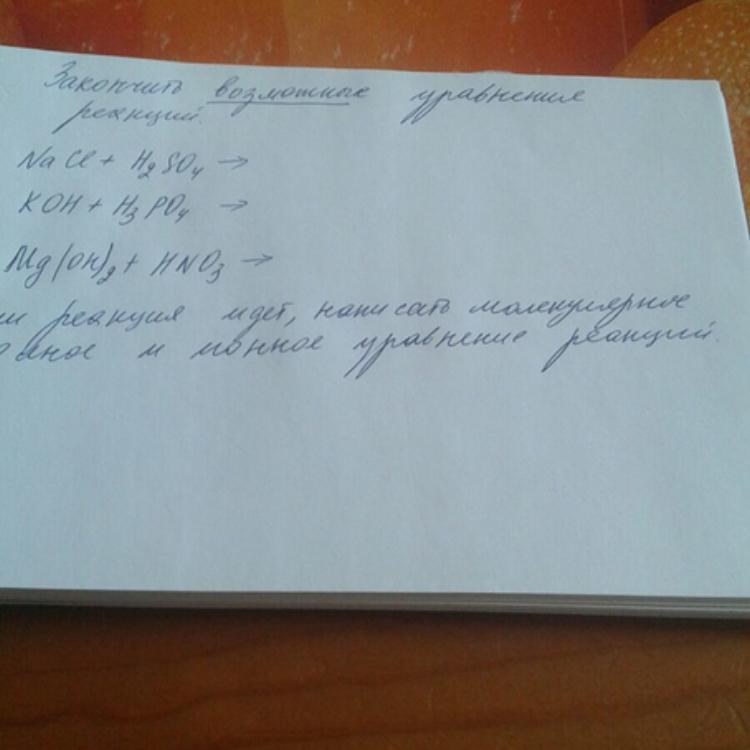 Закончить возможные уравнения
реакций.
NaCl + H₂SO₄ →
KOH + H₃PO₄ →
Mg(OH)₂ + HNO₃ →
ли реакция идет, написать молекулярное
и ионное уравнение реакций.